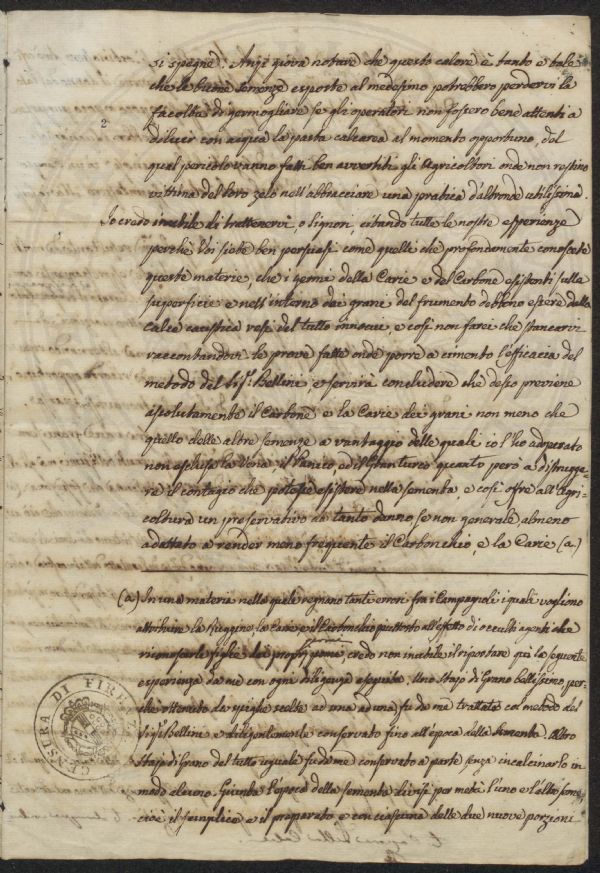 si spegne. Anzi giova notare che questo calore è tanto e tale
che le buone semenze esposte al medesimo potrebbero perdervi la
facoltà di germogliare se gli operatori non fossero bene attenti a
diluir con acqua la pasta calcarea al momento opportuno, del
2
qual pericolo vanno fatti ben avvertiti gli Agricoltori onde non restino
vittima del loro zelo nell'abbracciare una pratica d'altronde utilissima.
Io credo inutile di trattenervi, o Signori citando tutte le nostre esperienze
perché Voi siete ben persuasi come quelli che profondamente conoscete
queste materie, che i germi della Carie e del Carbone esistenti sulla
superficie e nell'interno dei grani del frumento debbono essere dalla
Calce caustica resi del tutto innocui, e così non farei che stancarvi
raccontandovi le prove fatte onde porre a cimento l'efficacia del
metodo del Sigr. Bellini, e servirà concludere che desso previene
assolutamente il Carbone e la Carie dei grani non meno che
quello delle altre semenze a vantaggio delle quali io l'ho adoperato
non esclusa la Vena, il Panico, ed il Granturco quanto però a distrugge-
re il contagio che potesse esistere nella sementa e così offre all'Agri-
coltura un preservativo da tanto danno se non generale almeno
adattato a render meno frequente il Carbonchio, e la Carie (a.)
(a) In una materia nella quale regnano tanti errori fra i Campagnoli i quali vogliono
attribuire la Ruggine, la Carie e il Carbonchio piuttosto all'effetto di occulti agenti che
riconoscerle figlie, credo non inutile il riportare qui la seguente
esperienza da me con ogni diligenza eseguita. Uno Stajo di Grano bellissimo, per-
che ottenuto da spighe scelte ad una ad una fu da me trattato col metodo del
Sigr. Bellini e diligentemente conservato fino all'epoca della Sementa. Altro
Stajo di Grano del tutto uguale fu da me conservato a parte senza incalcinarlo in
modo alcuno. Giunta l'epoca della sementa divisi per metà l'uno e l'altro seme,
cioè il semplice e il preparato e con ciascuna delle due nuove porzioni
CENSURA DI FIRENZE